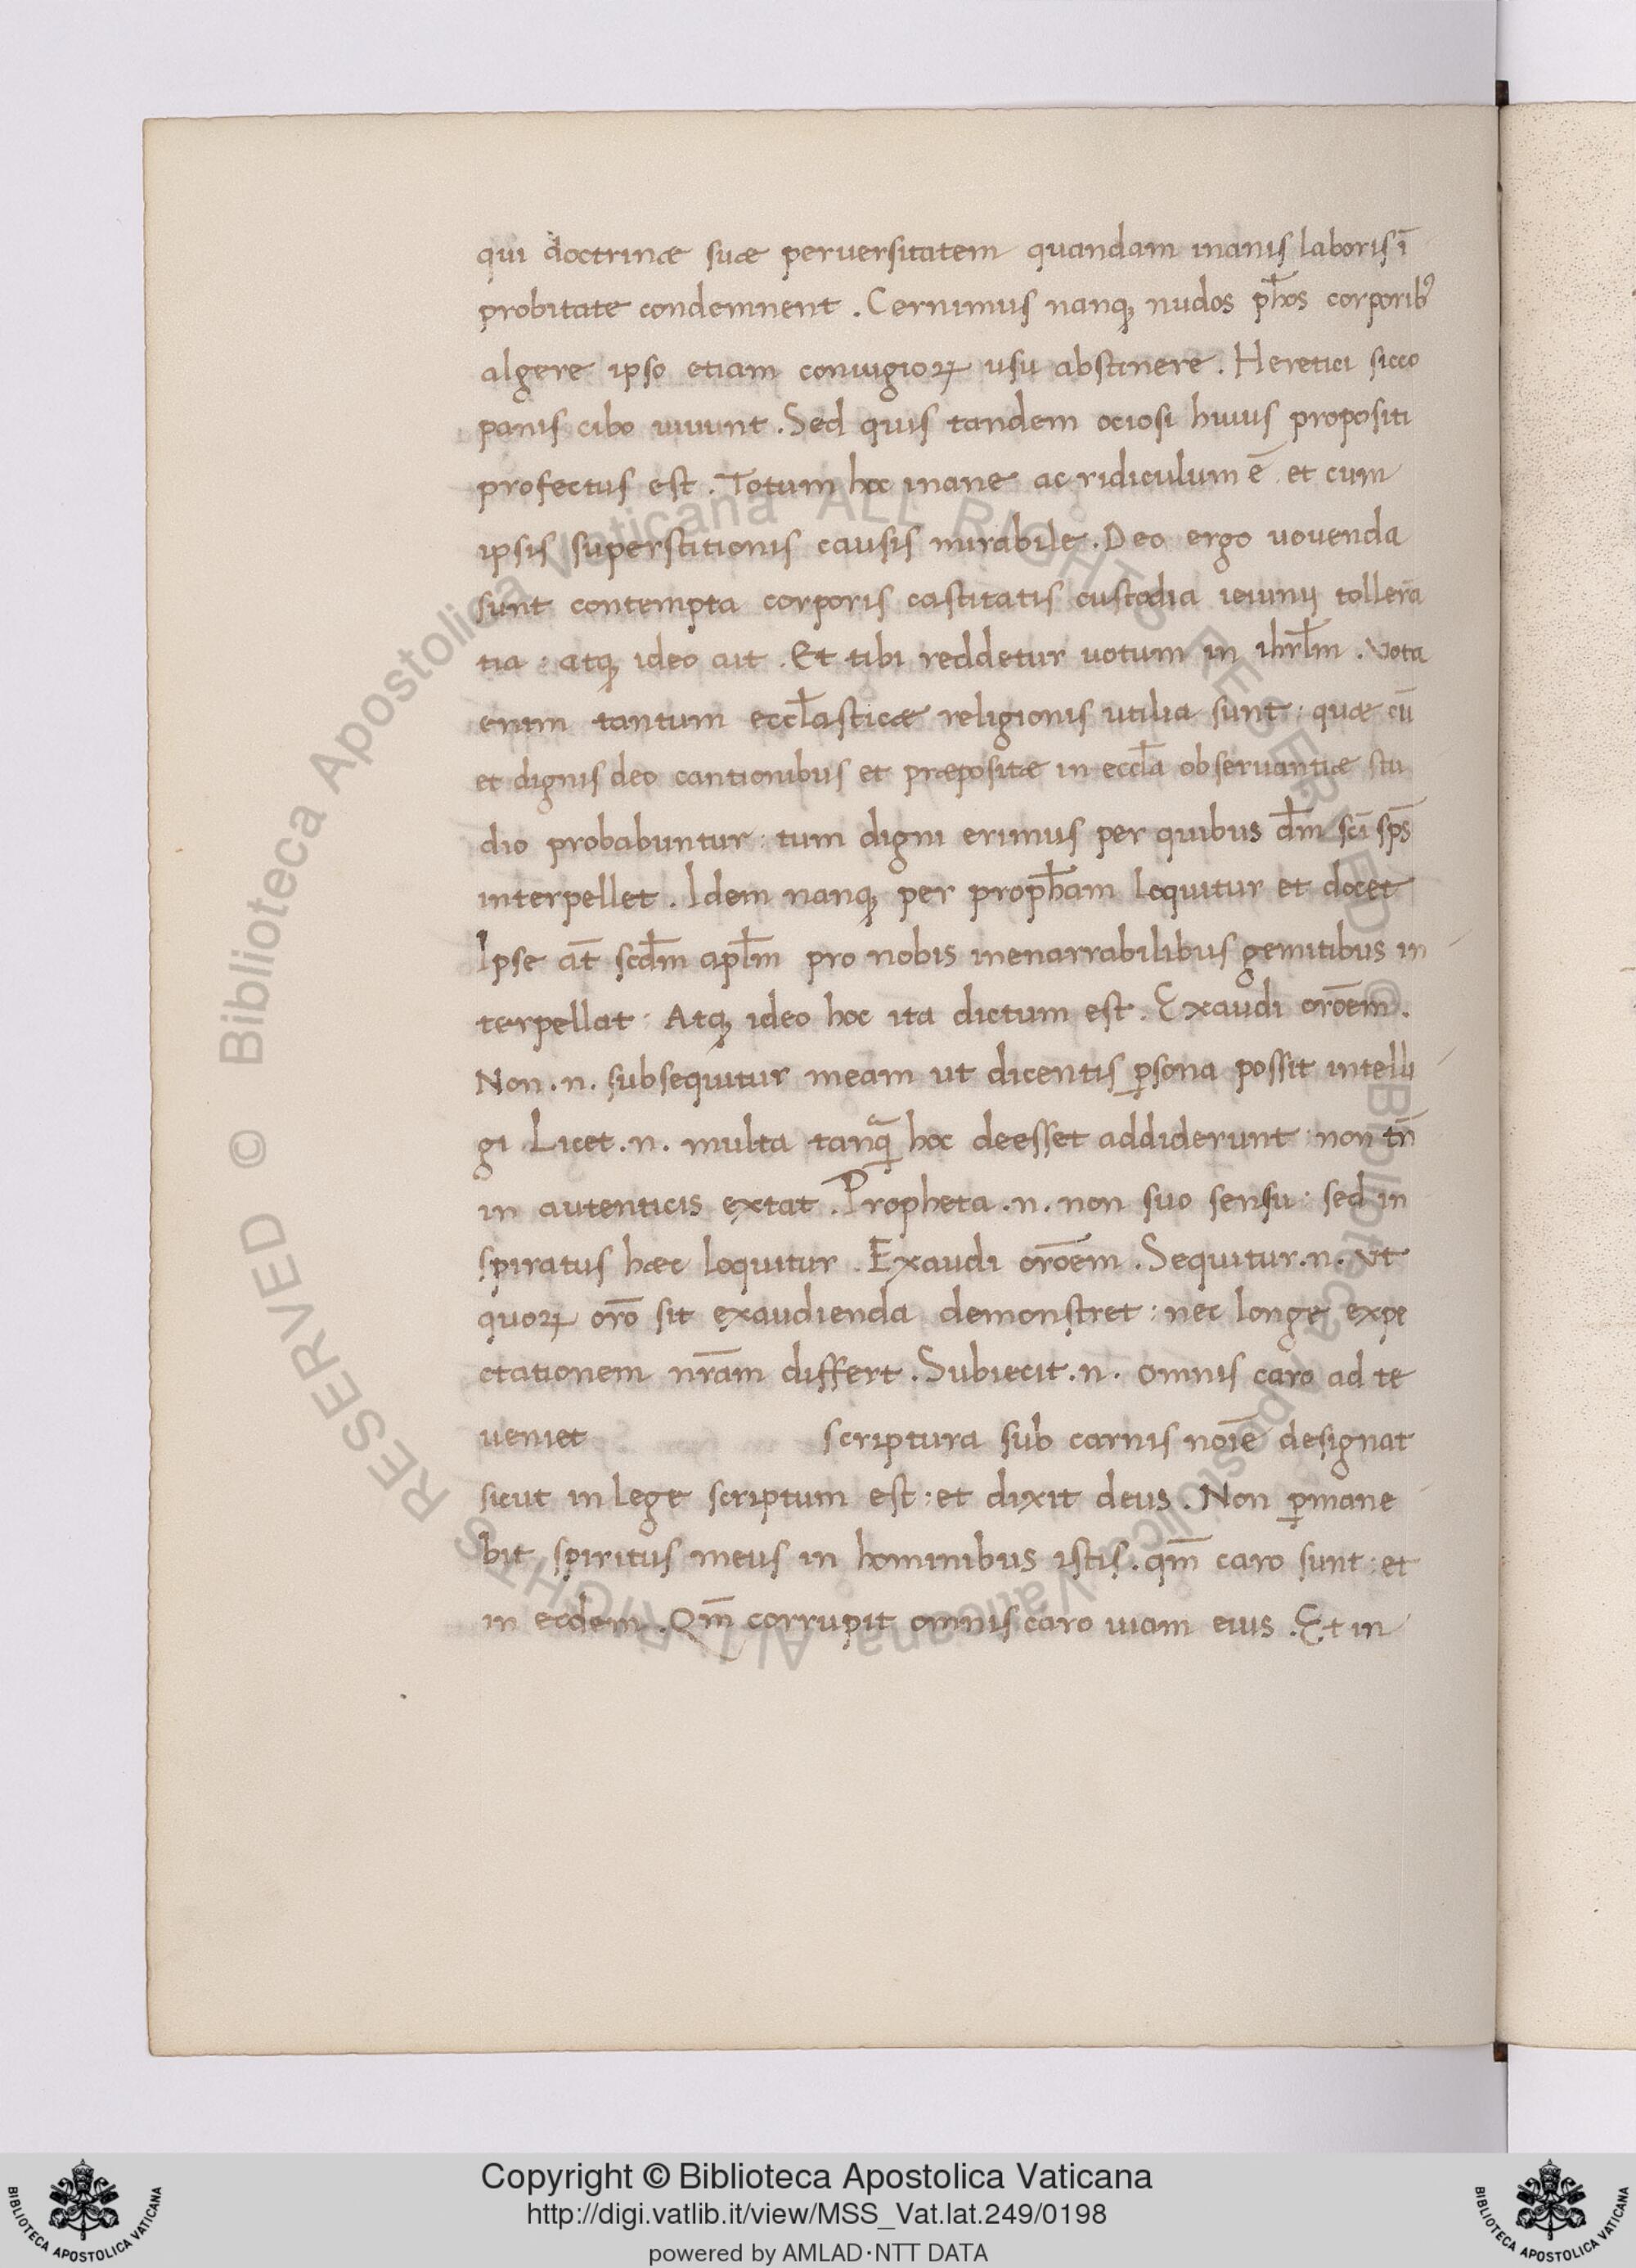 qui doctrinæ suæ peruersitatem quandam inanis laboris ī
probitate condemnent. Cernimus nanq; nudos ph̄os corporib⁹
algere ipso etiam coniugioꝝ usu abstinere. Heretici sicco
panis cibo uiuunt. Sed quis tandem ociosi huius propositi
profectus est. Totum hoc inane ac ridiculum ē et cum
ipsis superstitionis causis mirabile. Deo ergo uouenda
sunt contempta corporis castitatis custodia ieiunij tollera
tia: atq; ideo ait. Et tibi reddetur uotum in ihrl̄m. Vota
enim tantum eccl̄asticæ religionis utilia sunt: quæ cū
et dignis deo cantionibus et præpositæ in eccl̄a obseruantiæ stu
dio probabuntur: tum digni erimus per quibus dm̄ sci sps̄
interpellet. Idem nanq; per proph̄am loquitur et docet
Ipse at̄ scdm̄ apl̄m pro nobis inenarrabilibus gemitibus in
terpellat: Atq; ideo hoc ita dictum est. Exaudi orōem.
Non .n. subsequitur meam ut dicentis ꝑsona possit intelli
gi Licet .n. multa tanq̄ hoc deesset addiderunt: non tn̄
in autenticis extat. Propheta .n. non suo sensu: sed in
spiratus hæc loquitur. Exaudi orōem. Sequitur .n. Vt
quoꝝ orō sit exaudienda demonstret: nec longe expe
ctationem nr̄am differt. Subiecit .n. omnis caro ad te
ueniet scriptura sub carnis noīe designat
sicut in lege scriptum est: et dixit deus. Non ꝑmane
bit spiritus meus in hominibus istis. qm̄ caro sunt: et
in eodem. Qm̄ corrupit omnis caro uiam eius. Et in
© Biblioteca Apostolica Vaticana ALL RIGHTS RESERVED © Biblioteca Apostolica Vaticana ALL RIGHTS RESERVED
Copyright © Biblioteca Apostolica Vaticana
http://digi.vatlib.it/view/MSS_Vat.lat.249/0198
powered by AMLAD·NTT DATA
BIBLIOTECA APOSTOLICA VATICANA
BIBLIOTECA APOSTOLICA VATICANA